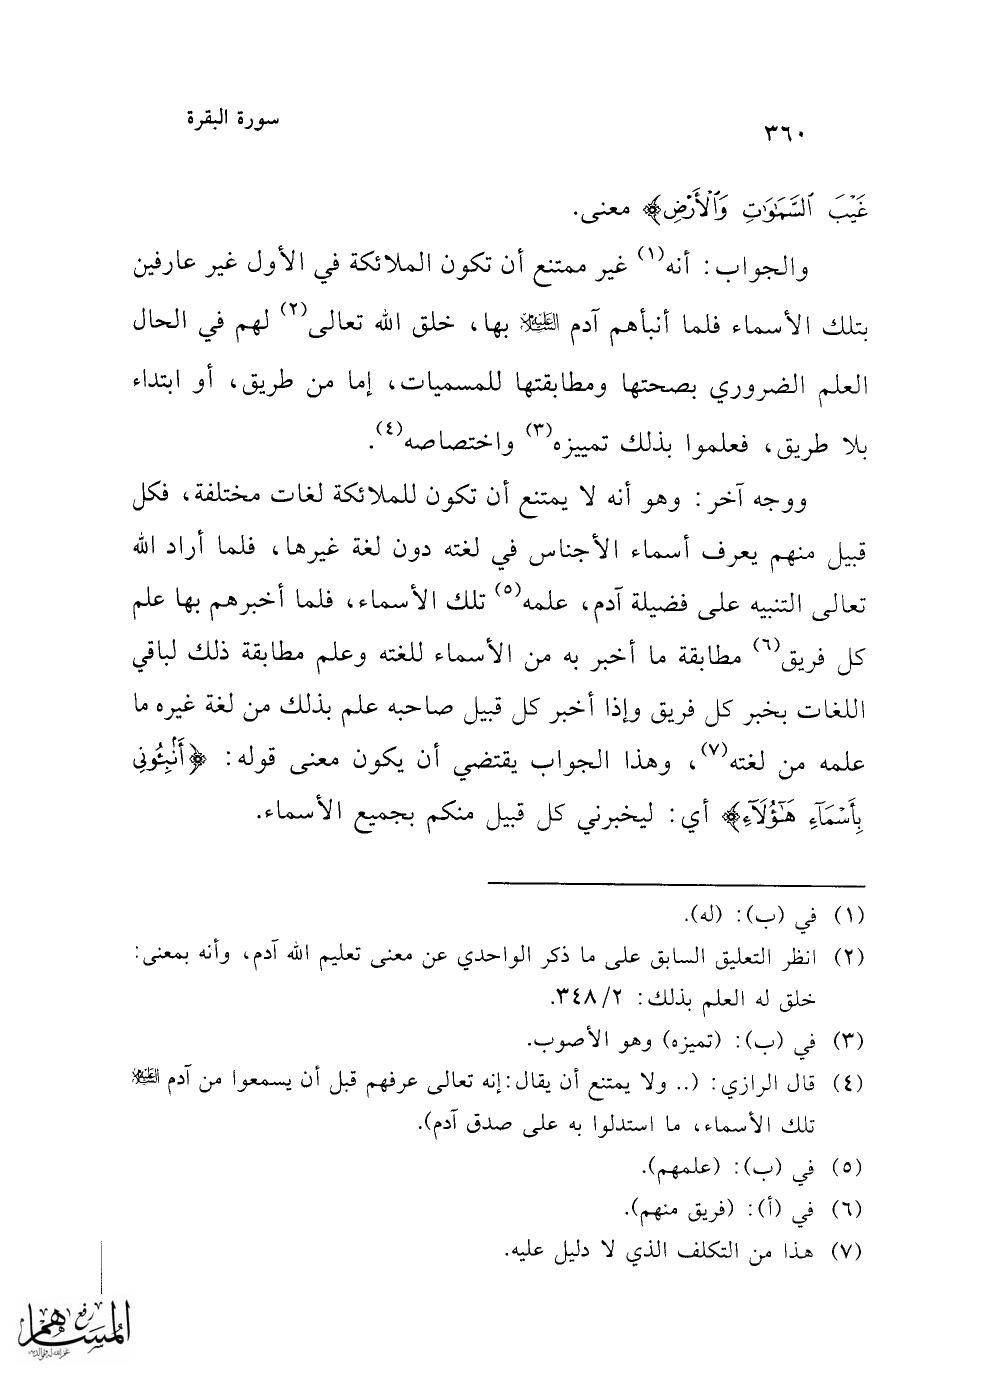 سورة البقرة
٣٦٠
غَيْبَ ٱلسَّمَٰوَٰتِ وَٱلْأَرْضِ﴾ معنى.
والجواب: أنه(١) غير ممتنع أن تكون الملائكة في الأول غير عارفين
بتلك الأسماء فلما أنبأهم آدم عليه السلام بها، خلق الله تعالى(٢) لهم في الحال
العلم الضروري بصحتها ومطابقتها للمسميات، إما من طريق، أو ابتداء
بلا طريق، فعلموا بذلك تمييزه(٣) واختصاصه(٤).
ووجه آخر: وهو أنه لا يمتنع أن تكون للملائكة لغات مختلفة، فكل
قبيل منهم يعرف أسماء الأجناس في لغته دون لغة غيرها، فلما أراد الله
تعالى التنبيه على فضيلة آدم، علمه(٥) تلك الأسماء، فلما أخبرهم بها علم
كل فريق(٦) مطابقة ما أخبر به من الأسماء للغته وعلم مطابقة ذلك لباقي
اللغات بخبر كل فريق وإذا أخبر كل قبيل صاحبه علم بذلك من لغة غيره ما
علمه من لغته(٧)، وهذا الجواب يقتضي أن يكون معنى قوله: ﴿أَنۢبِـُٔونِى
بِأَسْمَآءِ هَٰٓؤُلَآءِ﴾ أي: ليخبرني كل قبيل منكم بجميع الأسماء.
(١) في (ب): (له).
(٢) انظر التعليق السابق على ما ذكر الواحدي عن معنى تعليم الله آدم، وأنه بمعنى:
خلق له العلم بذلك: ٣٤٨/٢.
(٣) في (ب): (تميزه) وهو الأصوب.
(٤) قال الرازي: (.. ولا يمتنع أن يقال:إنه تعالى عرفهم قبل أن يسمعوا من آدم عليه السلام
تلك الأسماء، ما استدلوا به على صدق آدم).
(٥) في (ب): (علمهم).
(٦) في (أ): (فريق منهم).
(٧) هذا من التكلف الذي لا دليل عليه.
رفع
المساهم